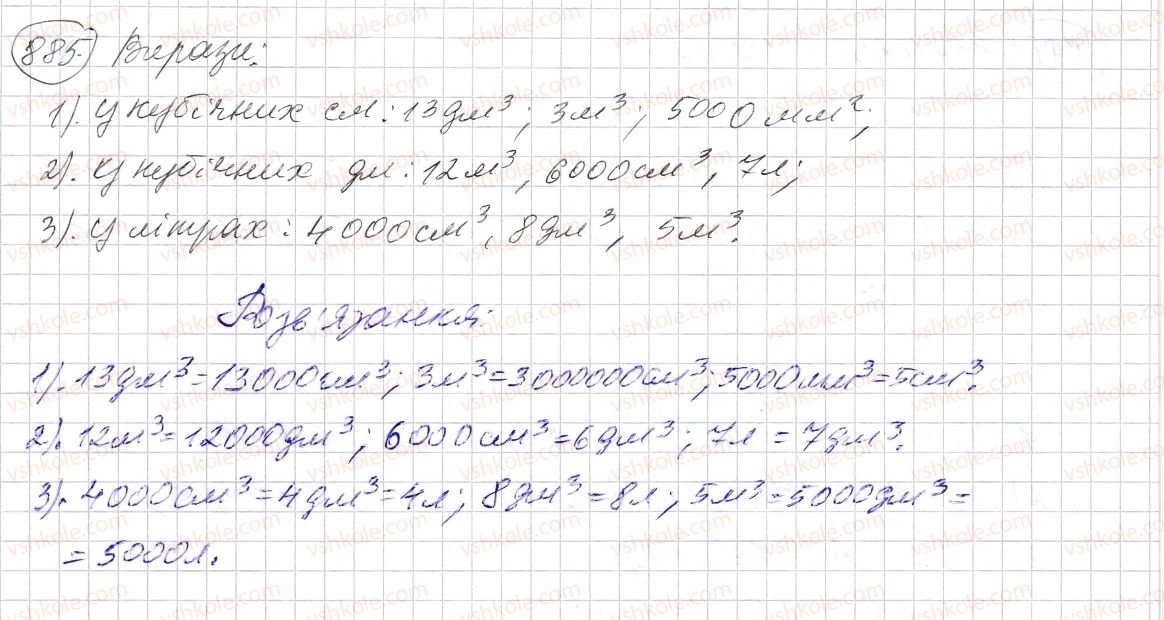 885. Вирази:
1). у кубічних см: 13дм³; 3м³; 5000 мм²;
2). у кубічних дм: 12м³, 6000см³, 7л;
3). у літрах: 4000см³, 8дм³, 5м³.
Розв'язання:
1). 13дм³=13000см³; 3м³=3000000см³; 5000мм³=5см³.
2). 12м³=12000дм³; 6000см³=6дм³; 7л=7дм³.
3). 4000см³=4дм³=4л; 8дм³=8л; 5м³=5000дм³=
=5000л.